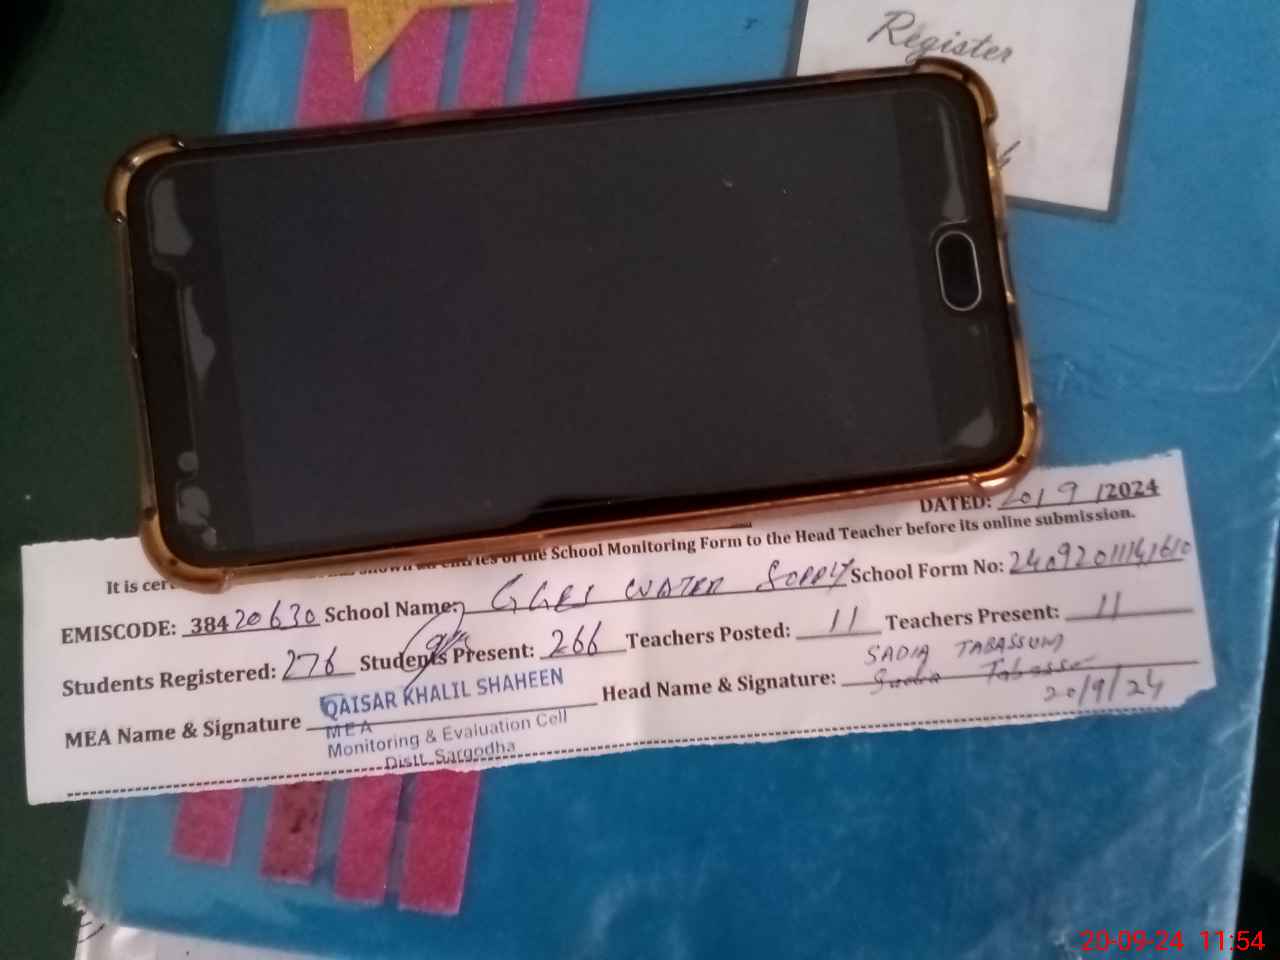 Register
DATED: 20/9/2024
entries of the School Monitoring Form to the Head Teacher before its online submission.
It is
EMISCODE: 38420630 School Name: GGES WATER SUPPLY School Form No:
Students Registered: 276 Students Present: 266 Teachers Posted: 11 Teachers Present: 11
MEA Name & Signature QAISAR KHALIL SHAHEEN Head Name & Signature: SADIA TABASSUM
MEA
Monitoring & Evaluation Cell
Distt. Sargodha
Sadia Tabassum
20/9/24
20-09-24 11:54